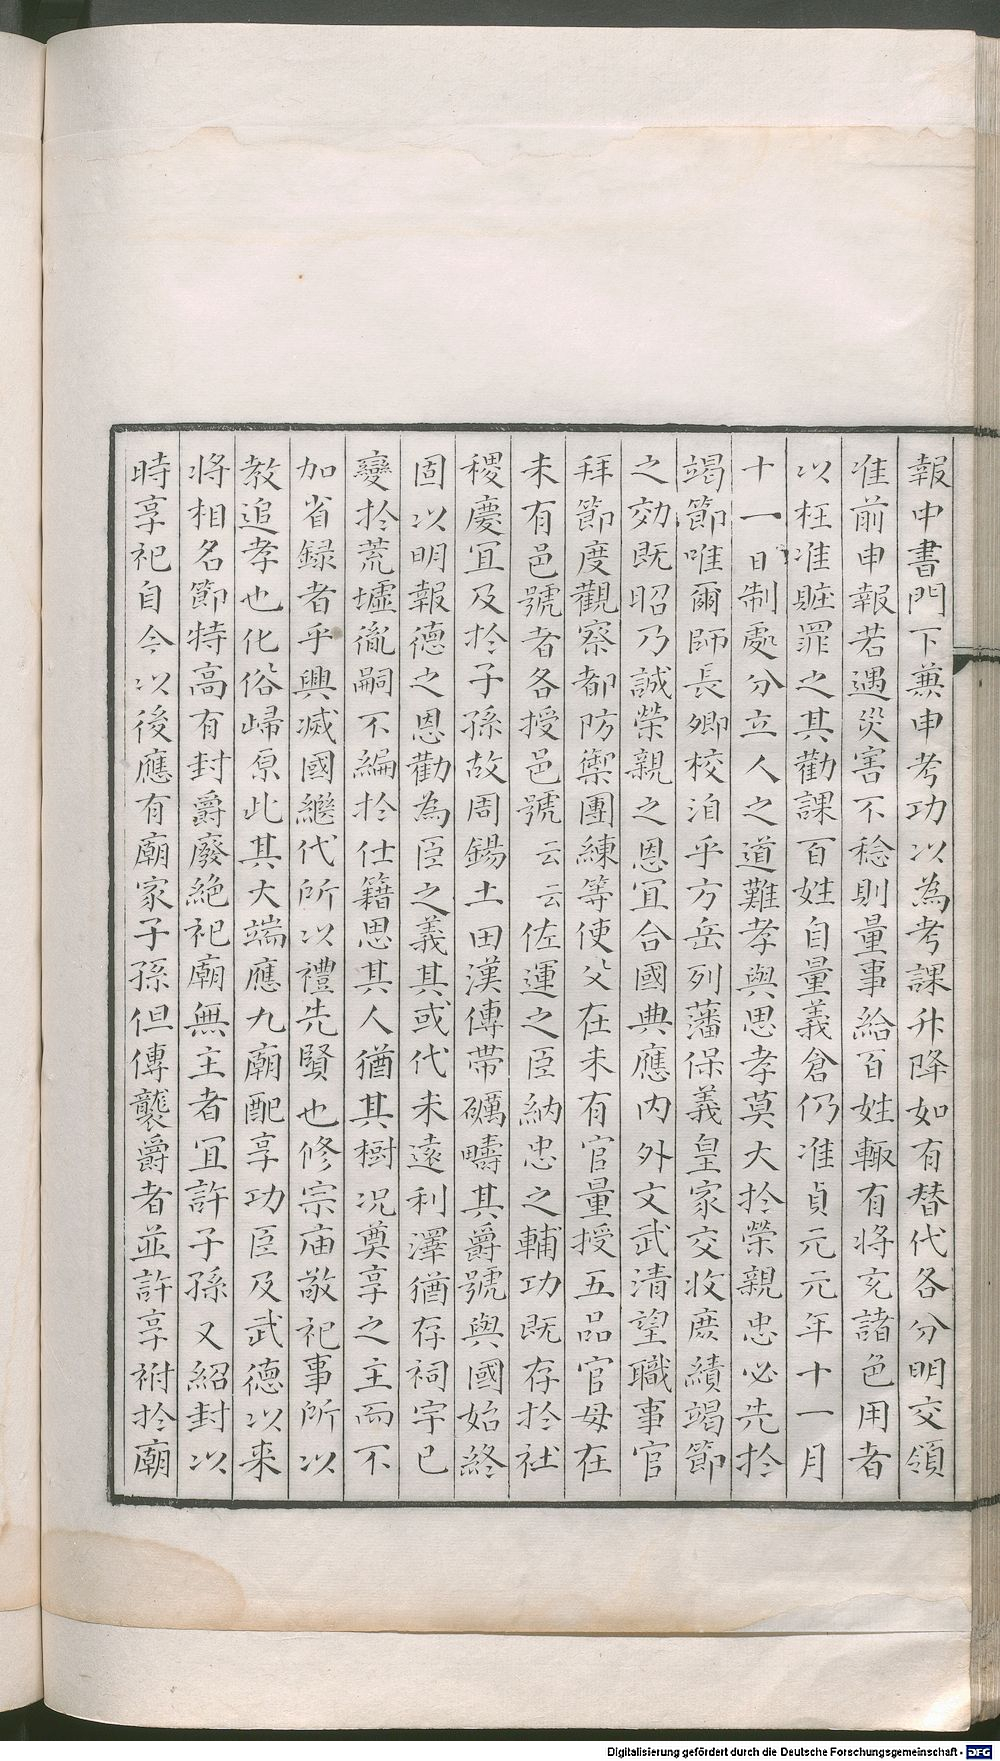 報中書門下兼申考功以為考課升降如有替代各分明交領
准前申報若遇災害不稔則量事給百姓輙有將充諸色用者
以枉准賍罪之其勸課百姓自量義倉仍准貞元元年十一月
十一日制處分立人之道難孝與思孝莫大扵榮親忠必先扵
竭節唯爾師長卿校洎乎方岳列藩保義皇家交收庶績竭節
之効既昭乃誠榮親之恩宜合國典應内外文武清望職事官
拜節度觀察都防禦團練等使父在未有官量授五品官母在
未有邑號者各授邑號云云佐運之臣納忠之輔功既存扵社
稷慶宜及扵子孫故周錫土田漢傳帶礪疇其爵號與國始終
固以明報德之恩勸為臣之義其或代未遠利澤猶存祠宇已
變扵荒墟胤嗣不編扵仕籍思其人猶其樹况奠享之主而不
加省録者乎興滅國繼代所以禮先賢也修宗庙敬祀事所以
教追孝也化俗歸原此其大端應九廟配享功臣及武德以来
將相名節特高有封爵廢絶祀廟無主者宜許子孫又紹封以
時享祀自今以後應有廟家子孫但傳襲爵者並許享祔扵廟
Digitalisierung gefördert durch die Deutsche Forschungsgemeinschaft - DFG